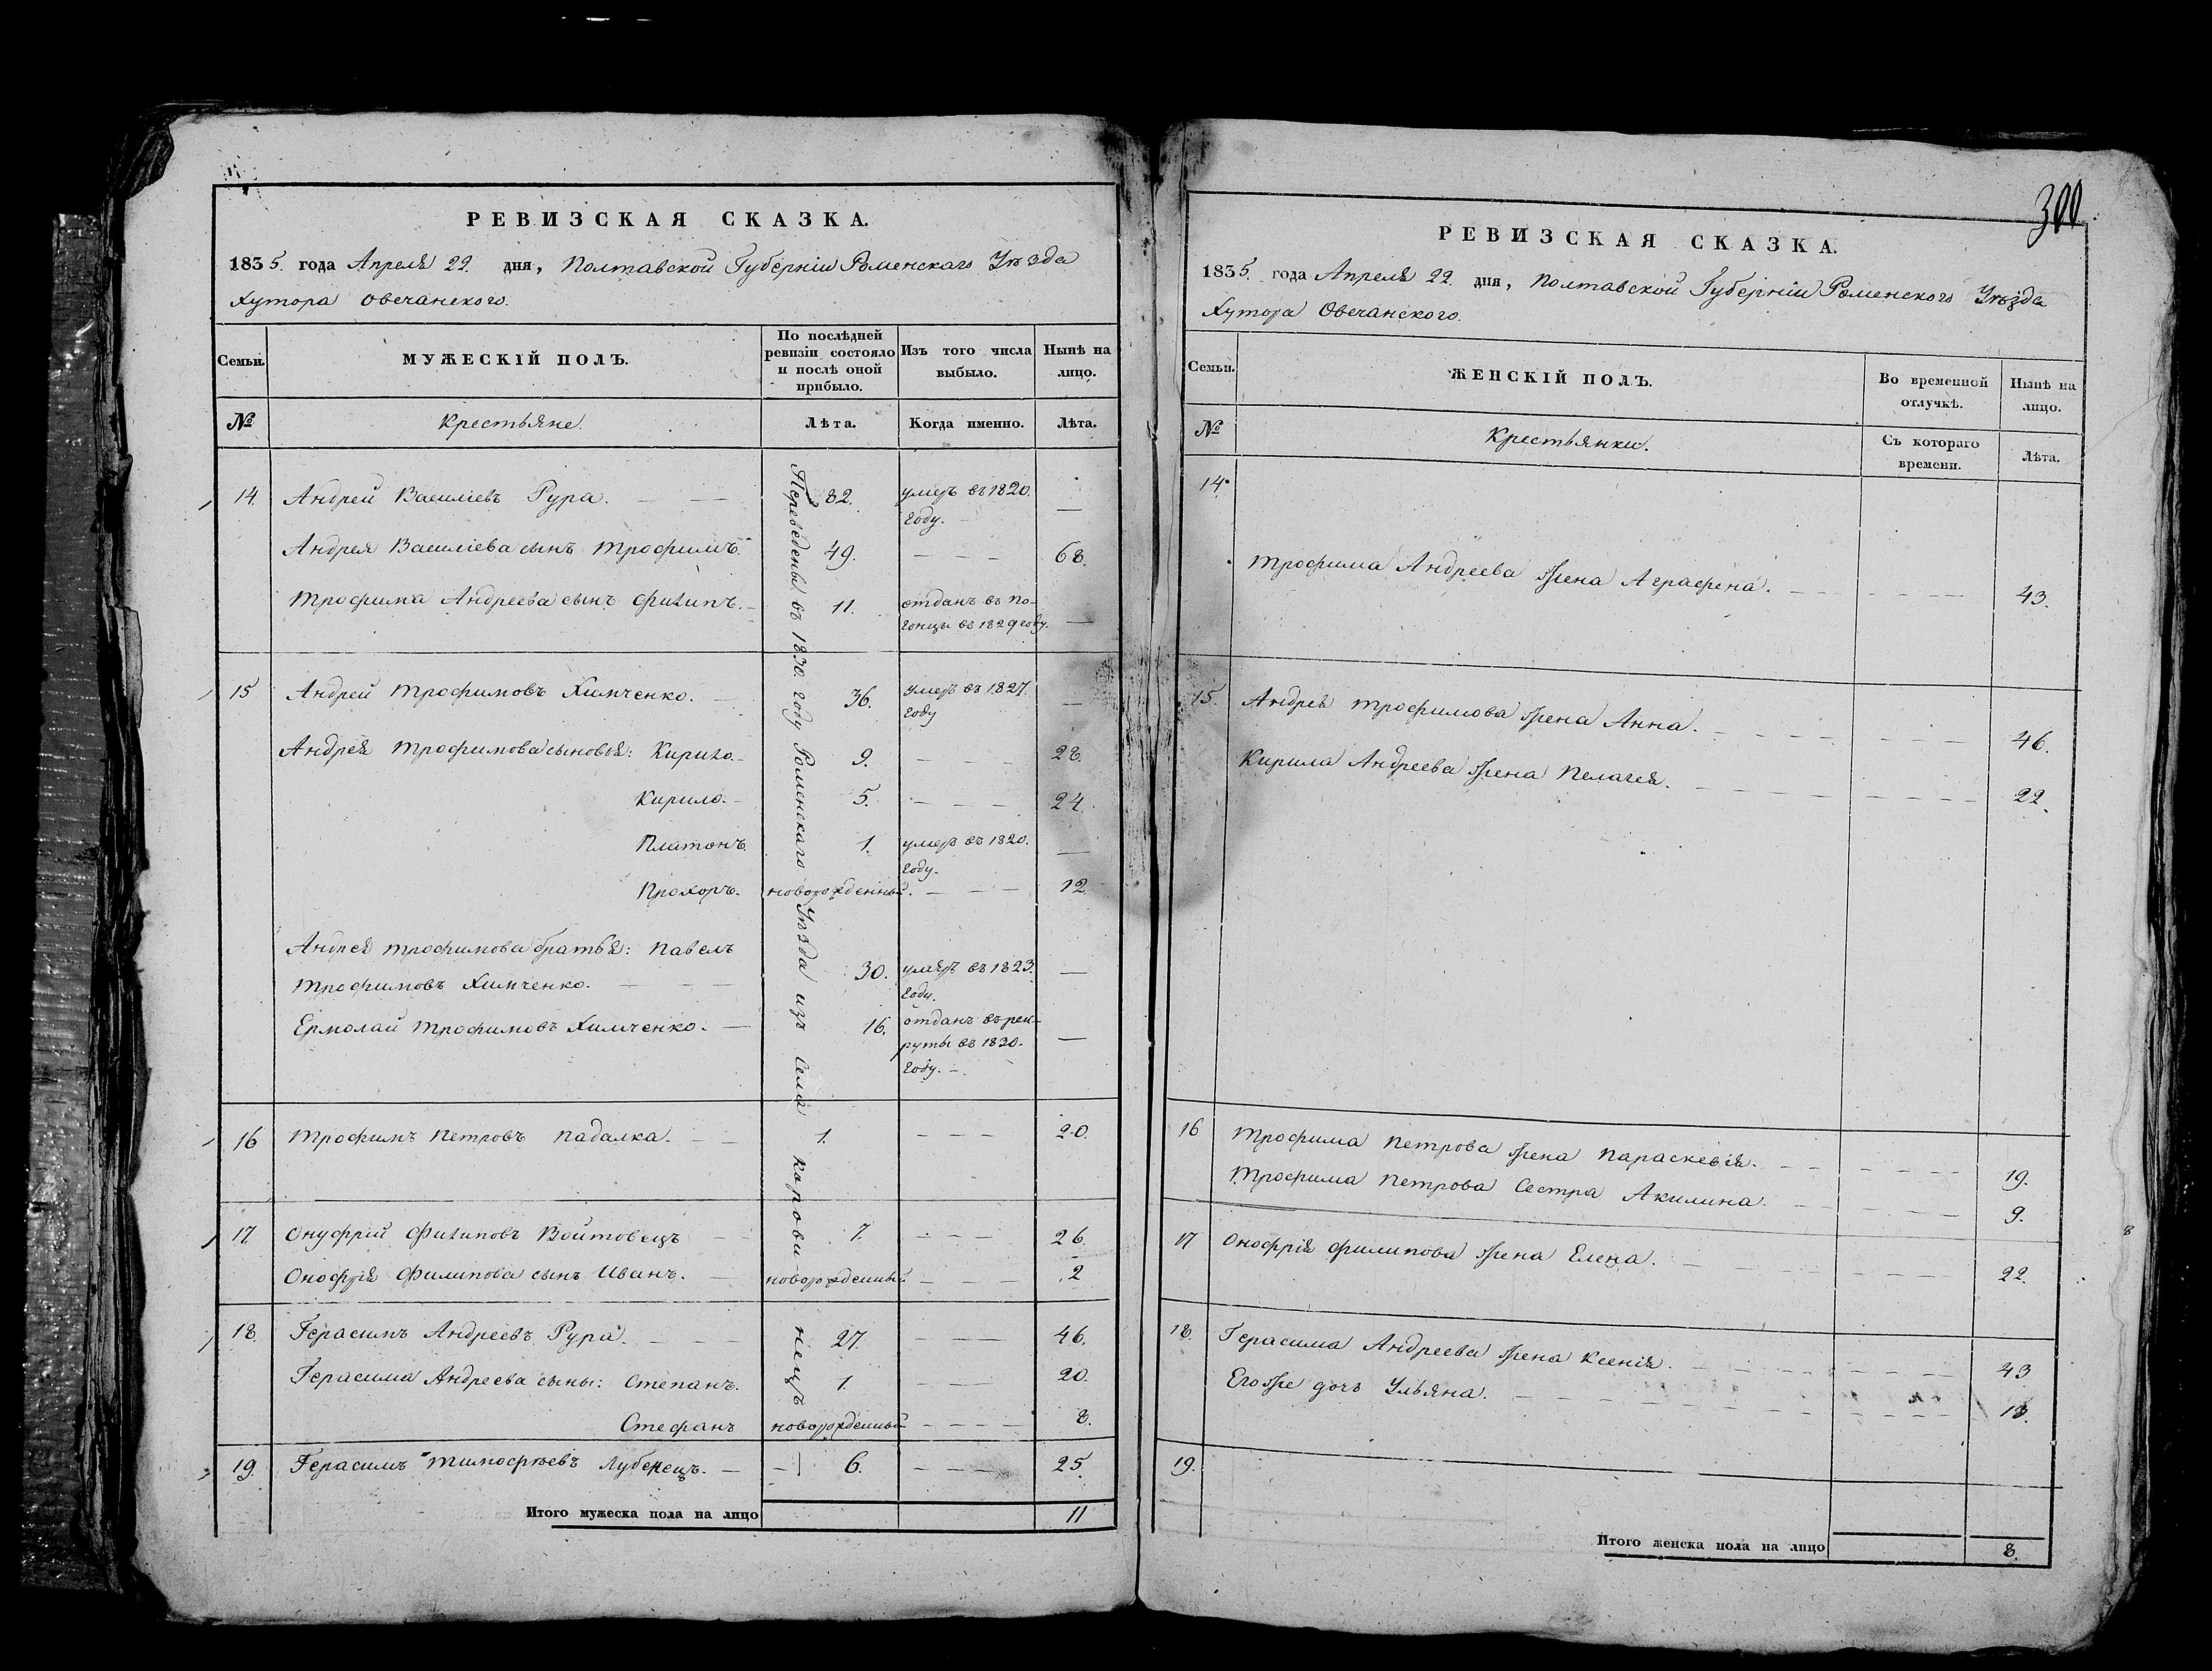 РЕВИЗСКАЯ СКАЗКА.
1835. года Апреля 22. дня, Полтавской Губерніи Роменскаго Уѣзда
Хутора Овечанского.
Семьи.
МУЖЕСКІЙ ПОЛЪ.
По послѣдней ревизіи состояло и послѣ оной прибыло.
Изъ того числа выбыло.
Нынѣ на лицо.
№
Крестьяне.
Лѣта.
Когда именно.
Лѣта.
Переведены въ 1830. году Роменскаго Уѣзда изъ села коровинецъ
14. Андрей Василіевъ Рура. — — 82. умеръ въ 1820. —
году.
Андрея Василіева сынъ Трофимъ. 49. — — — 68.
Трофима Андреева сынъ Филипъ. — 11. отданъ въ по-
гонцы въ 1829 году. —
15 Андрей Трофимовъ Химченко. — 36. умеръ въ 1827. —
году
Андрея Трофимова сыновья: Кирило. — 9. — — — 28.
Кирило. — 5. — — — 24.
Платонъ. 1. умеръ въ 1820. —
году.
Прохоръ. новорожденный. — — — 12.
Андрея Трофимова братья: Павелъ
Трофимовъ Химченко. — — — 30. умеръ въ 1823. —
году.
Ермолай Трофимовъ Химченко. — 16. отданъ въ рек-
руты въ 1830. —
году. —
16 Трофимъ Петровъ Падалка. — — 1. — — — 20.
17. Онуфрій Филиповъ Войтовецъ — 7. — — — 26.
Онофрія Филипова сынъ Иванъ. — новорожденный — — — 2
18. Герасимъ Андреевъ Рура. — — — 27. — — — 46.
Герасима Андреева сыны: Степанъ. 1. — — — 20.
Стефанъ новорожденный — — — 8.
19. Герасимъ Тимофѣевъ Лубенецъ. — — 6. — — — 25.
Итого мужеска пола на лицо 11
300
РЕВИЗСКАЯ СКАЗКА.
1835. года Апреля 22. дня, Полтавской Губерніи Роменского Уѣзда
Хутора Овечанского.
Семьи.
ЖЕНСКІЙ ПОЛЪ.
Во временной отлучкѣ.
Нынѣ на лицо.
№
Крестьянки.
Съ котораго времени.
Лѣта.
14.
Трофима Андреева жена Аграфена. — — — 43.
15. Андрея Трофимова жена Анна. — — — 46.
Кирила Андреева жена Пелагея. — — — 22.
16 Трофима Петрова жена Параскевія. — — — 19.
Трофима Петрова Сестра Акилина. — — — 9.
17 Онофрія Филипова жена Елена. — — — 22.
18. Герасима Андреева жена Ксенія. — — — 43.
Его же дочь Ульяна. — — — 18.
19.
Итого женска пола на лицо 8.